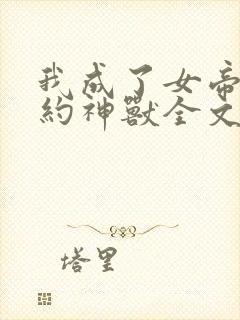 我成了女帝
約神獸全文
塔里